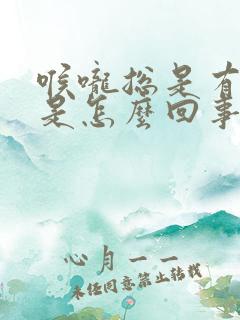 喉嚨總是有
是怎麼回事
心月一一
未經同意禁止轉載